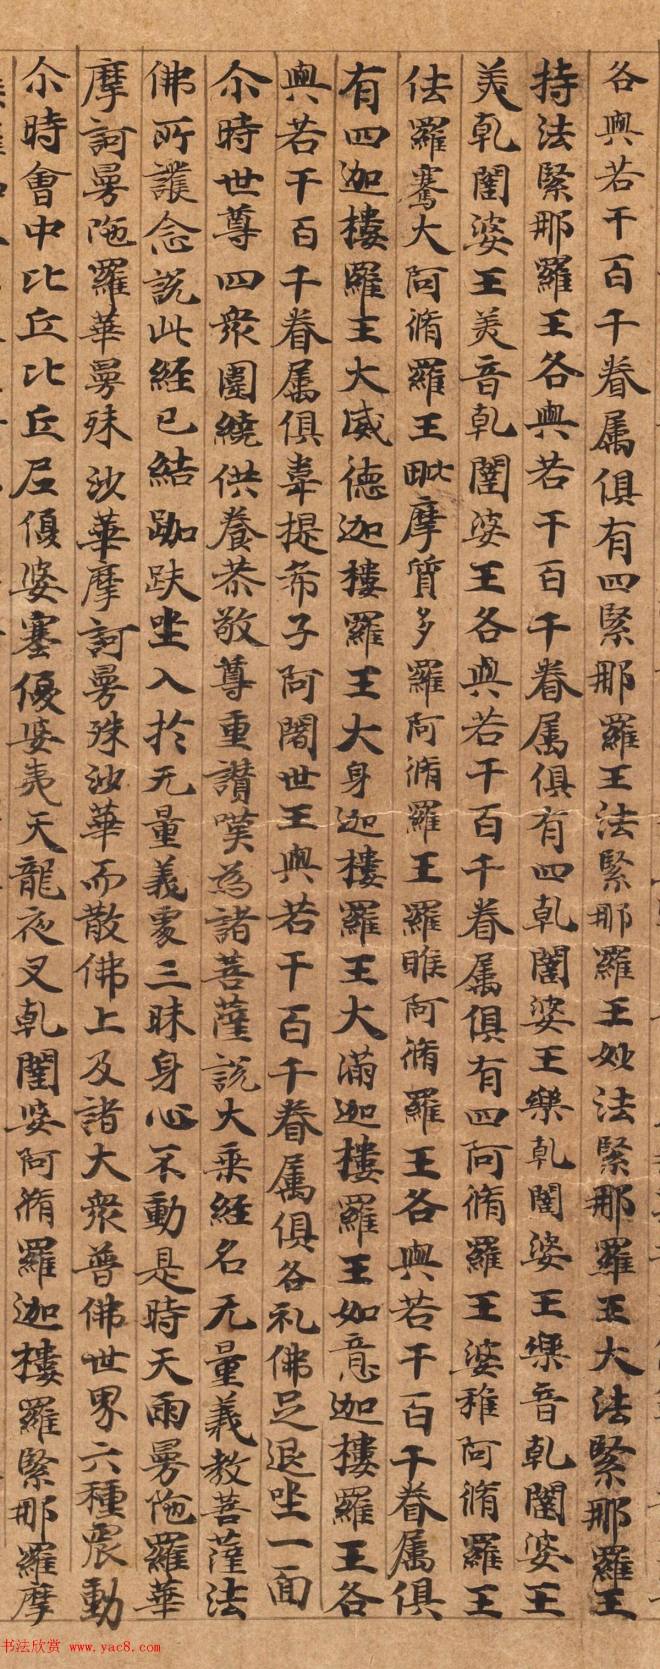 各與若干百千眷属俱有四緊那羅王法緊那羅王妙法緊那羅王大法緊那羅王
持法緊那羅王各與若干百千眷属俱有四乹闥婆王樂乹闥婆王樂音乹闥婆王
美乹闥婆王美音乹闥婆王各與若干百千眷属俱有四阿脩羅王婆稚阿脩羅王
佉羅騫大阿脩羅王毗摩質多羅阿脩羅王羅睺阿脩羅王各與若干百千眷属俱
有四迦樓羅王大威德迦樓羅王大身迦樓羅王大滿迦樓羅王如意迦樓羅王各
與若干百千眷属俱韋提希子阿闍世王與若干百千眷属俱各礼佛足退坐一面
尒時世尊四衆圍繞供養恭敬尊重讚嘆為諸菩薩說大乘経名无量義教菩薩法
佛所護念說此経已結跏趺坐入扵无量義處三昧身心不動是時天雨曼陁羅華
摩訶曼陁羅華曼殊沙華摩訶曼殊沙華而散佛上及諸大衆普佛世界六種震動
尒時會中比丘比丘尼優婆塞優婆夷天龍夜叉乹闥婆阿脩羅迦樓羅緊那羅摩
书法欣赏 www.yac8.com